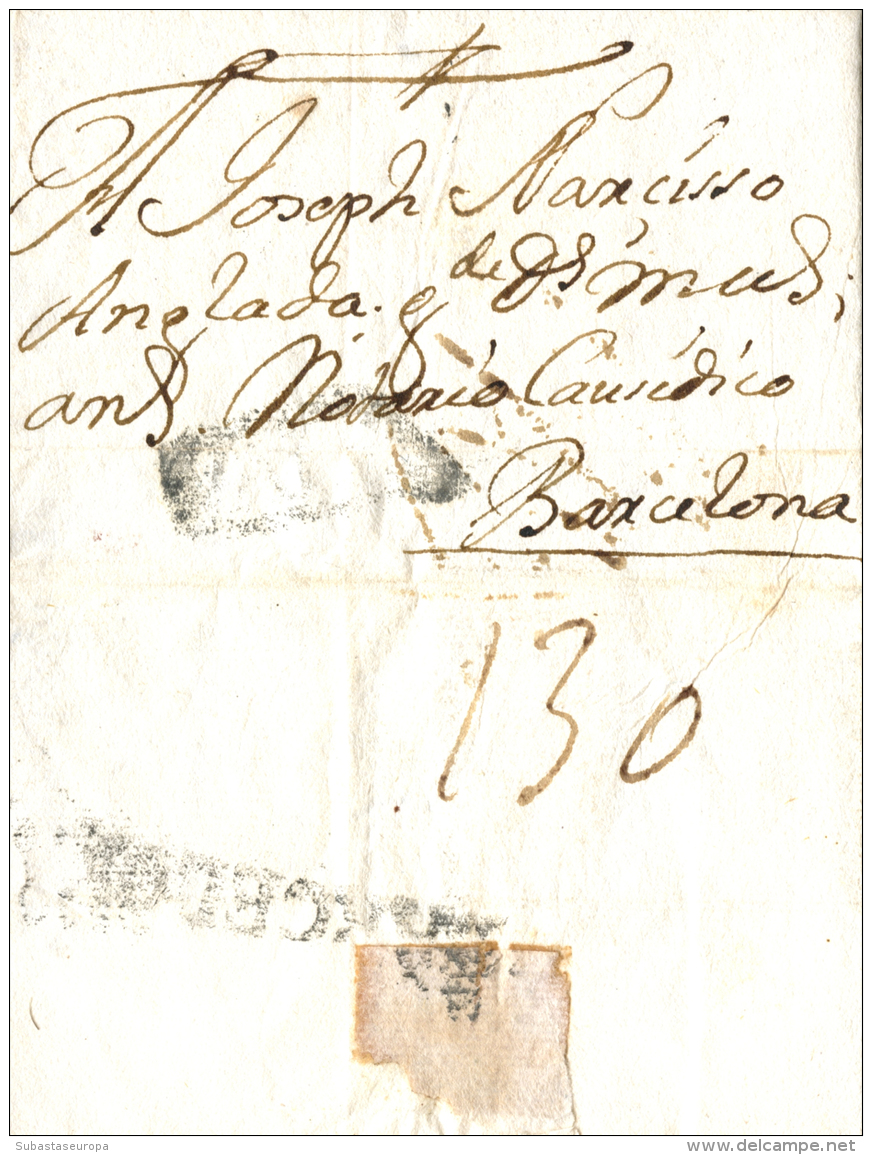 A Joseph Narcisso
Anglada. q de Ds ms ans;
ans. Notario Causidico
Barcelona
130
Subastaseuropa
www.delcampe.net